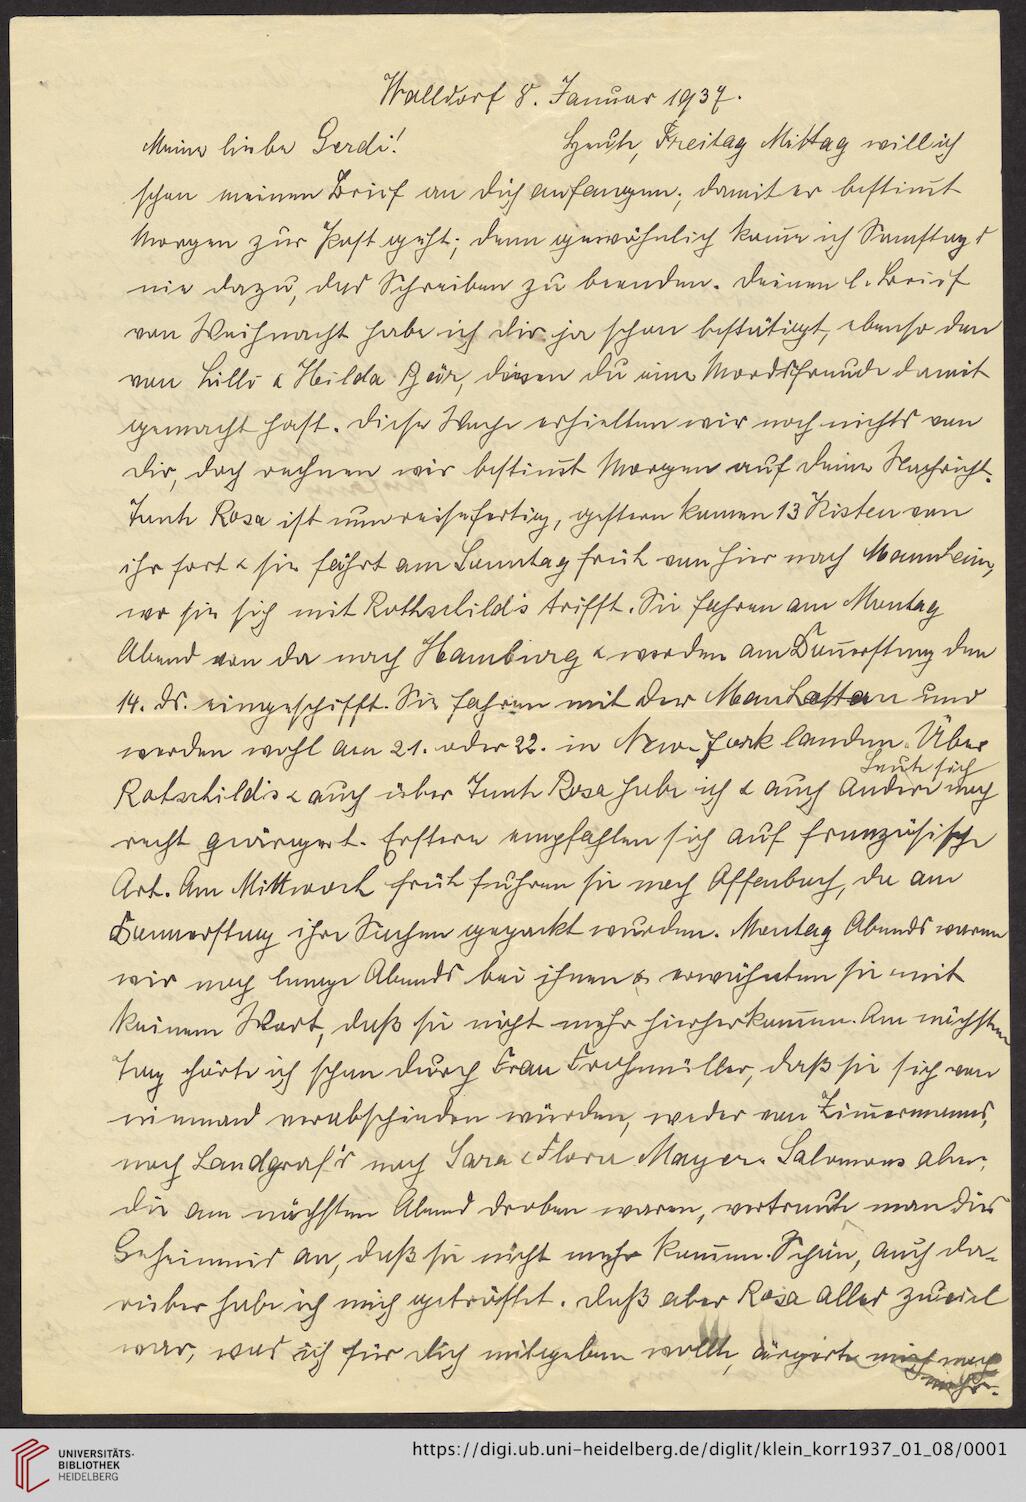 Walldorf 8. Januar 1937.
Meine liebe Gerdi! Heute, Freitag Mittag will ich
schon meinen Brief an dich anfangen; damit er bestim̄t
Morgen zur Post geht; denn gewöhnlich kom̄e ich Samstags
nie dazu, das Schreiben zu beenden. Deinen l. Brief
von Weihnacht habe ich dir ja schon bestätigt, ebenso den
von Lilli & Hilda Bär, denen du eine Mordsfreude damit
gemacht hast. Diese Woche erhielten wir noch nichts von
dir, doch rechnen wir bestim̄t Morgen auf deine Nachricht.
Tante Rosa ist nun reisefertig, gestern kamen 13 Kisten von
ihr fort & sie fährt am Sonntag früh von hier nach Mannheim,
wo sie sich mit Rothschild's trifft. Sie fahren am Montag
Abend von da nach Hamburg & werden am Don̄erstag den
14. ds. eingeschifft. Sie fahren mit der Manhattan und
werden wohl am 21. oder 22. in New-York landen. Über
Rotschild's & auch über Tante Rosa habe ich & auch andere Leute sich noch
recht geärgert. Erstere empfahlen sich auf französische
Art. Am Mittwoch früh fuhren sie nach Offenbach, da am
Donnerstag ihre Sachen gepackt wurden. Montag Abends waren
wir noch lange Abends bei ihnen & erwähnten sie mit
keinem Wort, daß sie nicht mehr hierherkom̄en. Am nächsten
Tag hörte ich schon durch Frau Frohmüller, daß sie sich von
niemand verabschieden würden, weder von Zim̄ermanns,
noch Landgraf's noch Sara & Flora Mayer. Salomons aber,
die am nächsten Abend droben waren, vertraute man dies
Geheimnis an, daß sie nicht mehr kom̄en. Schön, auch da-
rüber habe ich mich getröstet. Daß aber Rosa alles zuviel
war, was ich für dich mitgeben wollte, ärgerte mich noch
mehr.
UNIVERSITÄTS-
BIBLIOTHEK
HEIDELBERG
https://digi.ub.uni-heidelberg.de/diglit/klein_korr1937_01_08/0001